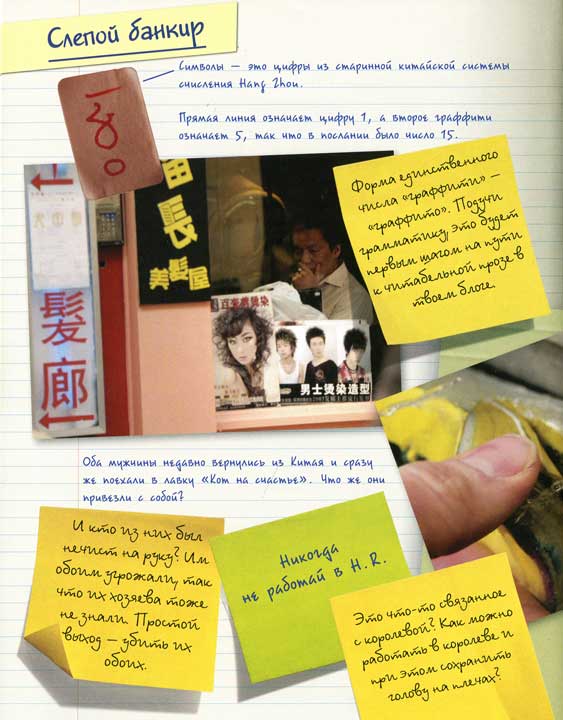 Слепой банкир
Символы — это цифры из старинной китайской системы
счисления Hang Zhou.
Прямая линия означает цифру 1, а второе граффити
означает 5, так что в послании было число 15.
Форма единственного
числа «граффити» —
«граффито». Подучи
грамматику, это будет
первым шагом на пути
к читабельной прозе в
твоем блоге.
長
美髮屋
髮
廊
男士燙染造型
Оба мужчины недавно вернулись из Китая и сразу
же поехали в лавку «Кот на счастье». Что же они
привезли с собой?
И кто из них был
нечист на руку? Им
обоим угрожали, так
что их хозяева тоже
не знали. Простой
выход — убить их
обоих.
Никогда
не работай в H.R.
Это что-то связанное
с королевой? Как можно
работать в королеве и
при этом сохранить
голову на плечах?